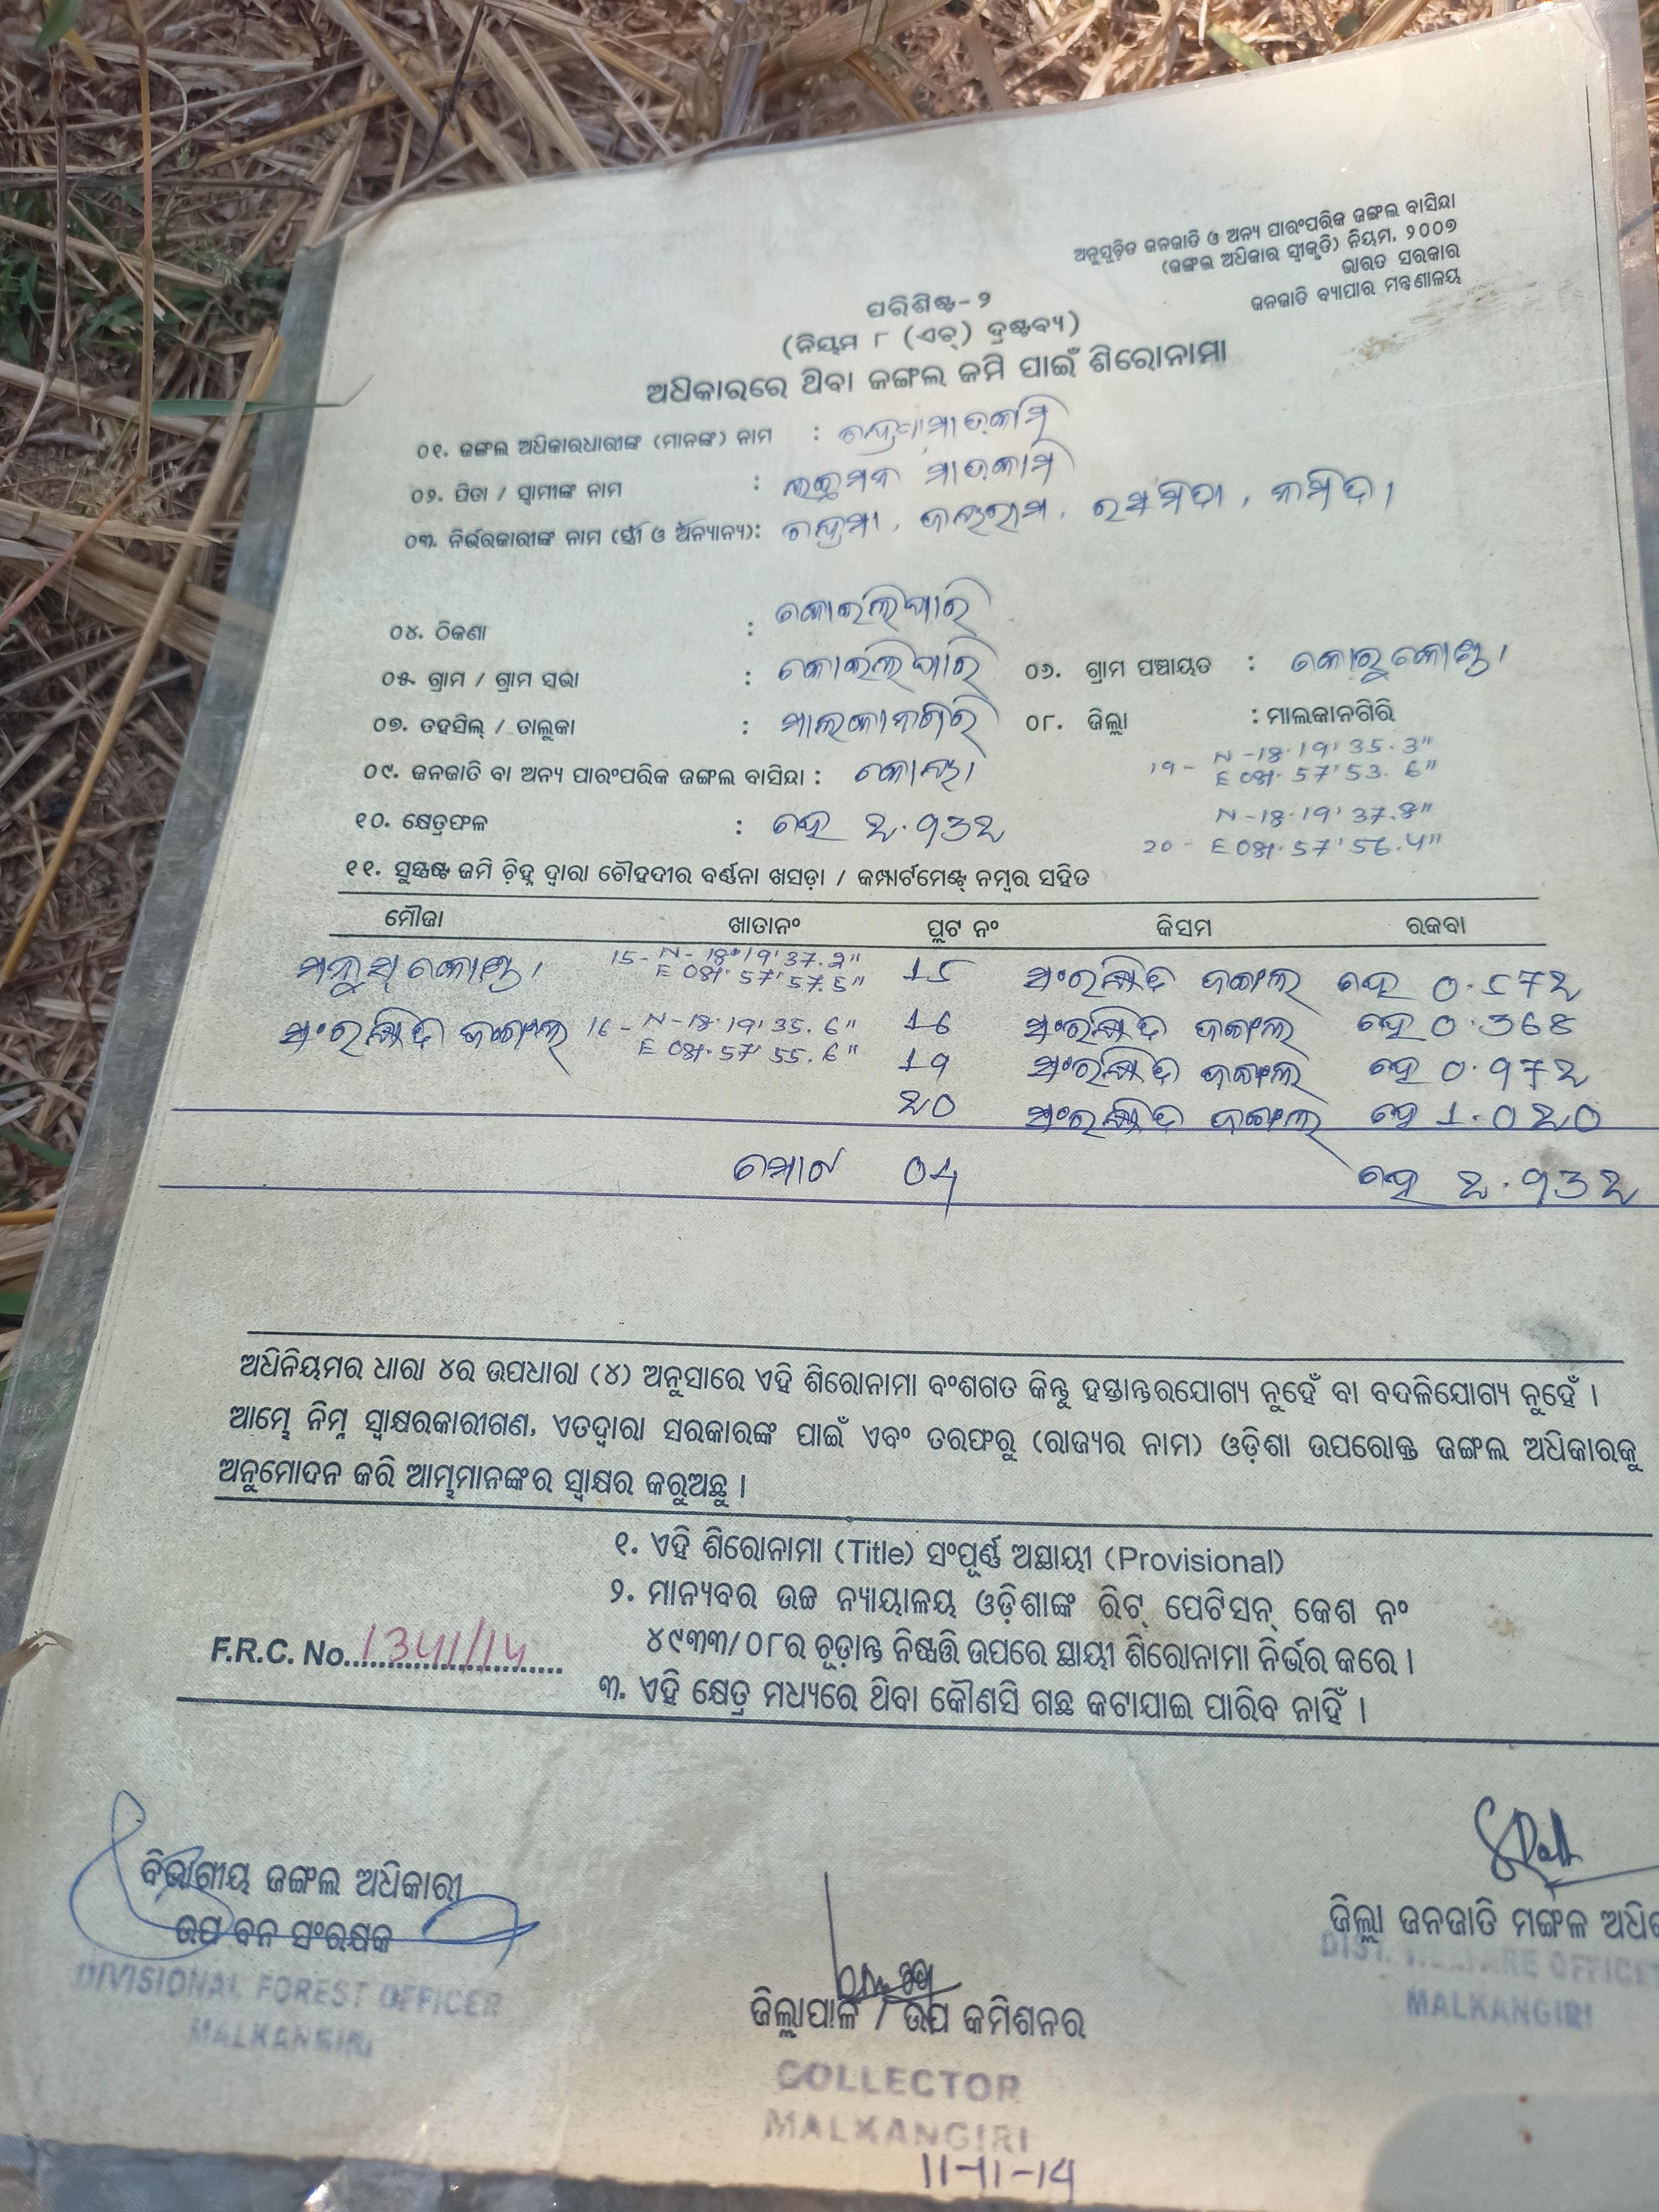 ଅନୁସୂଚିତ ଜନଜାତି ଓ ଅନ୍ୟ ପାରଂପରିକ ଜଙ୍ଗଲ ବାସିନ୍ଦା
(ଜଙ୍ଗଲ ଅଧିକାର ସ୍ୱୀକୃତି) ନିୟମ, ୨୦୦୭
ଭାରତ ସରକାର
ଜନଜାତି ବ୍ୟାପାର ମନ୍ତ୍ରଣାଳୟ
ପରିଶିଷ୍ଟ-୨
(ନିୟମ ୮ (ଏଚ୍) ଦ୍ରଷ୍ଟବ୍ୟ)
ଅଧିକାରରେ ଥିବା ଜଙ୍ଗଲ ଜମି ପାଇଁ ଶିରୋନାମା
୦୧. ଜଙ୍ଗଲ ଅଧିକାରଧାରୀଙ୍କ (ମାନଙ୍କ) ନାମ :
୦୨. ପିତା / ସ୍ୱାମୀଙ୍କ ନାମ : ଲଛମନ ମାଡ଼କାମି
୦୩. ନିର୍ଭରକାରୀଙ୍କ ନାମ (ସ୍ତ୍ରୀ ଓ ଅନ୍ୟାନ୍ୟ):
୦୪. ଠିକଣା : କୋଇଲିପାରି
୦୫. ଗ୍ରାମ / ଗ୍ରାମ ସଭା : କୋଇଲିପାରି ୦୬. ଗ୍ରାମ ପଞ୍ଚାୟତ : କୋରୁକୋଣ୍ଡା
୦୭. ତହସିଲ୍ / ତାଲୁକା : ମାଲକାନଗିରି ୦୮. ଜିଲ୍ଲା : ମାଲକାନଗିରି
19- N-18·19' 35.3"
E 081·57' 53.6"
୦୯. ଜନଜାତି ବା ଅନ୍ୟ ପାରଂପରିକ ଜଙ୍ଗଲ ବାସିନ୍ଦା : କୋୟା
୧୦. କ୍ଷେତ୍ରଫଳ : ହେ ୨.୭୩୨
N-18·19' 37.8"
20- E 081·57' 56.4"
୧୧. ସୁସ୍ପଷ୍ଟ ଜମି ଚିହ୍ନ ଦ୍ୱାରା ଚୌହଦୀର ବର୍ଣ୍ଣନା ଖସଡ଼ା / କମ୍ପାର୍ଟମେଣ୍ଟ୍ ନମ୍ବର ସହିତ
ମୌଜା ଖାତାନଂ ପ୍ଲଟ ନଂ କିସମ ରକବା
15- N-18·19' 37.2"
E 081·57' 57.5"
୧୫ ସଂରକ୍ଷିତ ଜଙ୍ଗଲ ହେ ୦.୫୭୨
ସଂରକ୍ଷିତ ଜଙ୍ଗଲ 16- N-18·19' 35.6"
E 081·57' 55.6"
୧୬ ସଂରକ୍ଷିତ ଜଙ୍ଗଲ ହେ ୦.୩୬୮
୧୯ ସଂରକ୍ଷିତ ଜଙ୍ଗଲ ହେ ୦.୭୭୨
୨୦ ସଂରକ୍ଷିତ ଜଙ୍ଗଲ ହେ ୧.୦୨୦
ମୋଟ ୦୪ ହେ ୨.୭୩୨
ଅଧିନିୟମର ଧାରା ୪ର ଉପଧାରା (୪) ଅନୁସାରେ ଏହି ଶିରୋନାମା ବଂଶଗତ କିନ୍ତୁ ହସ୍ତାନ୍ତରଯୋଗ୍ୟ ନୁହେଁ ବା ବଦଳିଯୋଗ୍ୟ ନୁହେଁ ।
ଆମ୍ଭେ ନିମ୍ନ ସ୍ୱାକ୍ଷରକାରୀଗଣ, ଏତଦ୍ୱାରା ସରକାରଙ୍କ ପାଇଁ ଏବଂ ତରଫରୁ (ରାଜ୍ୟର ନାମ) ଓଡ଼ିଶା ଉପରୋକ୍ତ ଜଙ୍ଗଲ ଅଧିକାରକୁ
ଅନୁମୋଦନ କରି ଆମ୍ଭମାନଙ୍କର ସ୍ୱାକ୍ଷର କରୁଅଛୁ ।
୧. ଏହି ଶିରୋନାମା (Title) ସଂପୂର୍ଣ୍ଣ ଅସ୍ଥାୟୀ (Provisional)
୨. ମାନ୍ୟବର ଉଚ୍ଚ ନ୍ୟାୟାଳୟ ଓଡ଼ିଶାଙ୍କ ରିଟ୍ ପେଟିସନ୍ କେଶ ନଂ
୪୯୩୩/୦୮ର ଚୂଡ଼ାନ୍ତ ନିଷ୍ପତ୍ତି ଉପରେ ସ୍ଥାୟୀ ଶିରୋନାମା ନିର୍ଭର କରେ ।
F.R.C. No. 1341/14
୩. ଏହି କ୍ଷେତ୍ର ମଧ୍ୟରେ ଥିବା କୌଣସି ଗଛ କଟାଯାଇ ପାରିବ ନାହିଁ ।
ବିଭାଗୀୟ ଜଙ୍ଗଲ ଅଧିକାରୀ
ଉପ ବନ ସଂରକ୍ଷକ
DIVISIONAL FOREST OFFICER
MALKANGIRI
ଜିଲ୍ଲା ଜନଜାତି ମଙ୍ଗଳ ଅଧି
DIST. WELFARE OFFICE
MALKANGIRI
ଜିଲ୍ଲାପାଳ / ଉପ କମିଶନର
COLLECTOR
MALKANGIRI
11-11-14